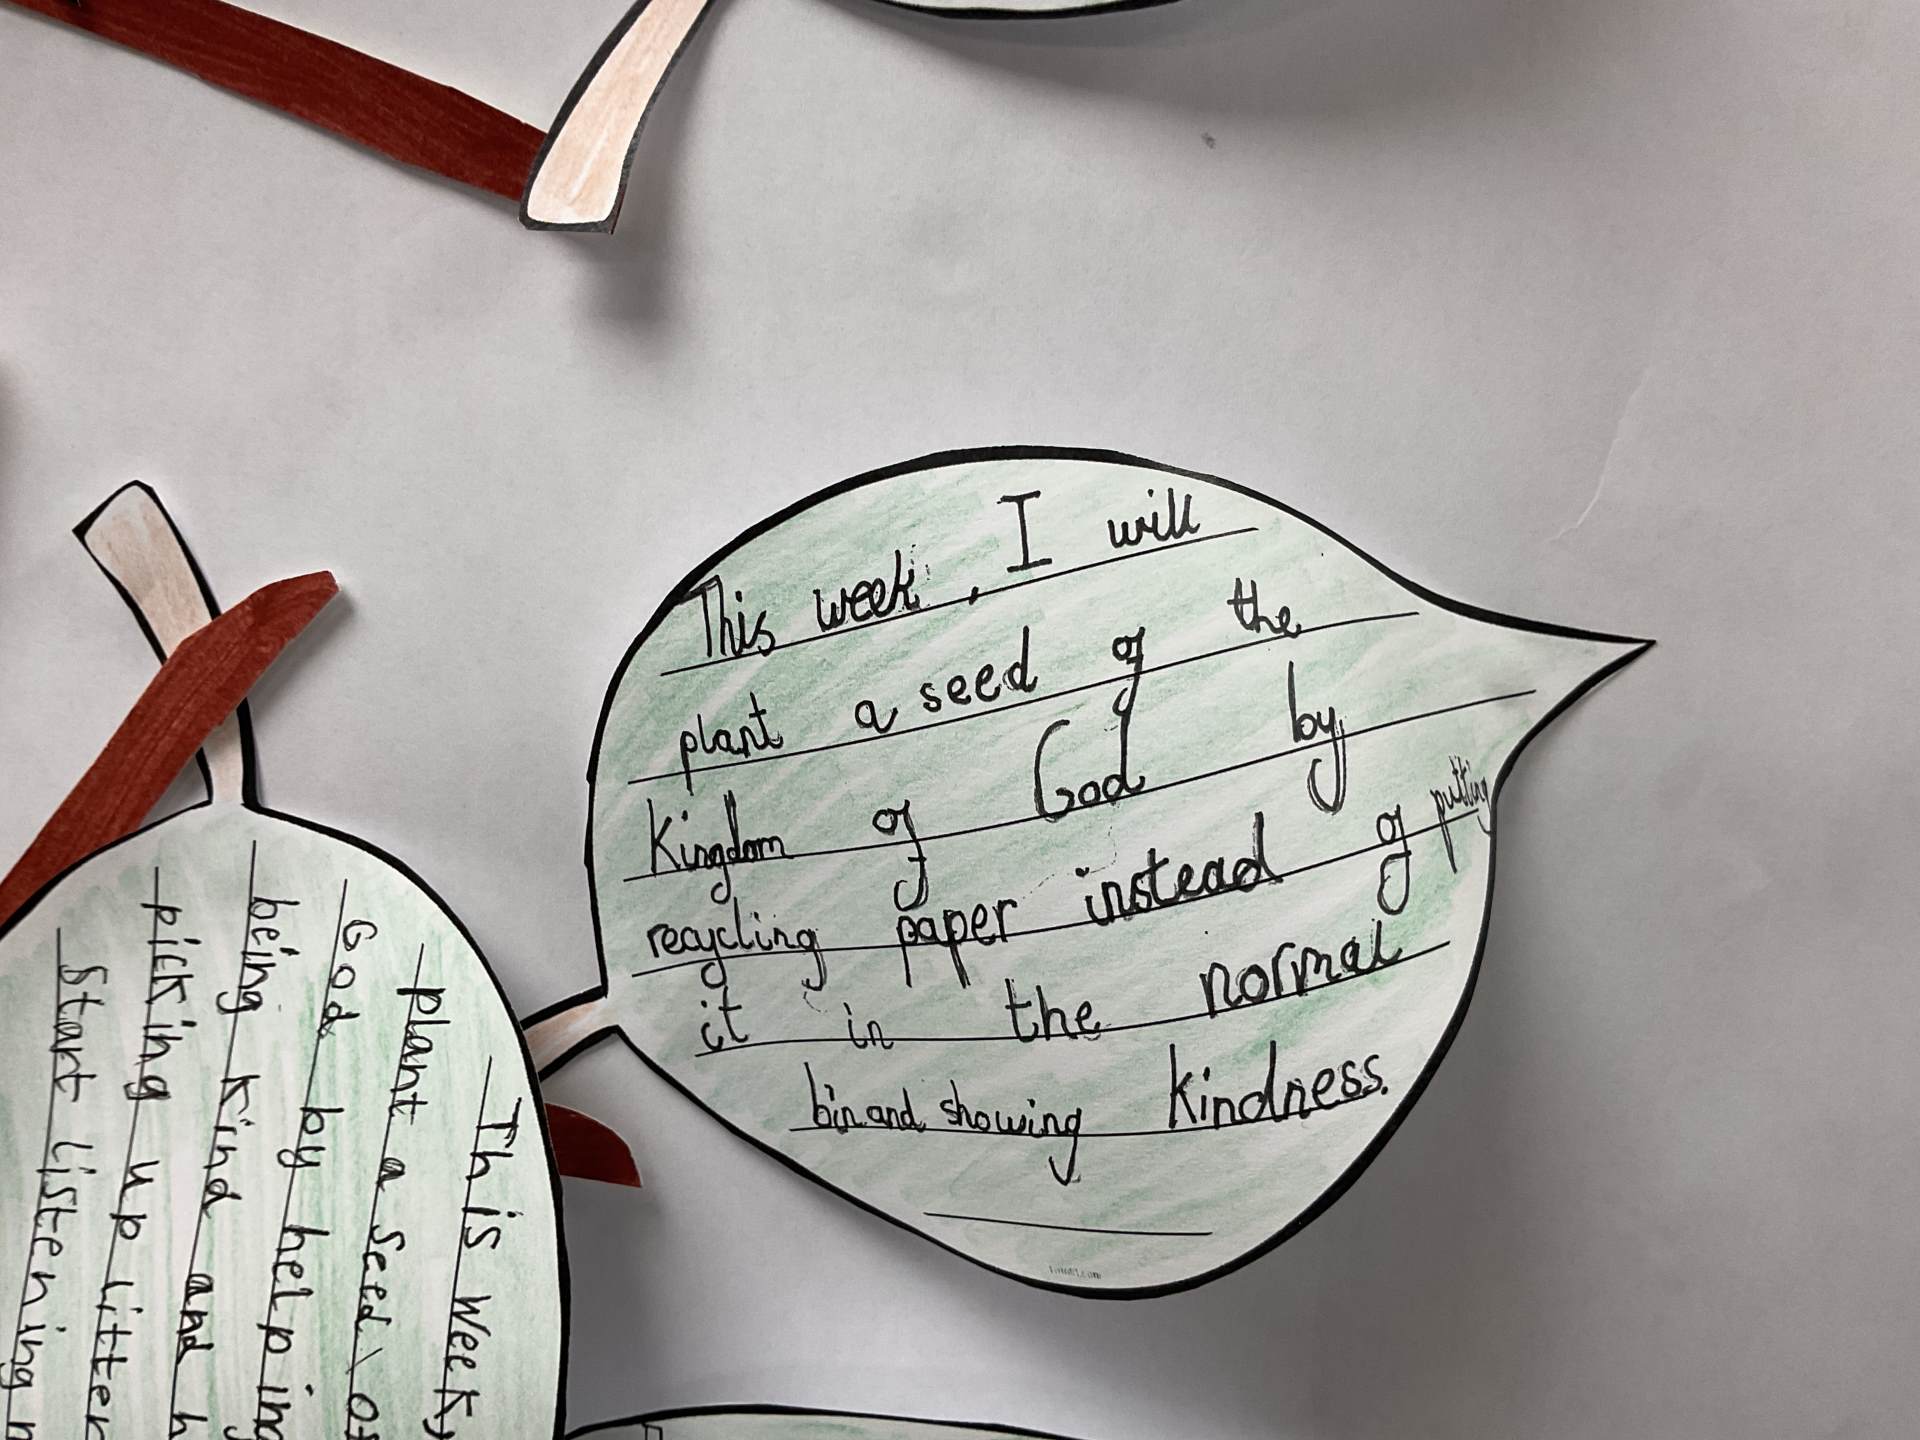 This week, I will
plant a seed of the
Kingdom of God by
recycling paper instead of putting
it in the normal
bin and showing kindness.
This week,
plant a seed of
God by helping
being kind and h
picking up litter
Start listening